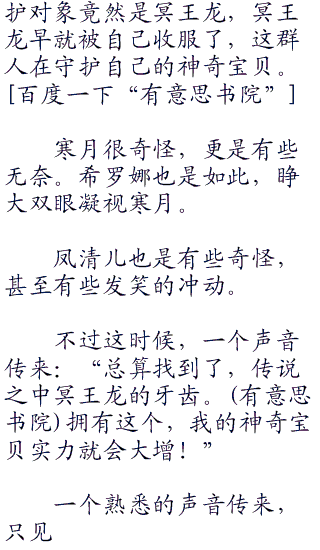 护对象竟然是冥王龙，冥王
龙早就被自己收服了，这群
人在守护自己的神奇宝贝。
[百度一下“有意思书院”]
寒月很奇怪，更是有些
无奈。希罗娜也是如此，睁
大双眼凝视寒月。
凤清儿也是有些奇怪，
甚至有些发笑的冲动。
不过这时候，一个声音
传来：“总算找到了，传说
之中冥王龙的牙齿。(有意思
书院)拥有这个，我的神奇宝
贝实力就会大增！”
一个熟悉的声音传来，
只见